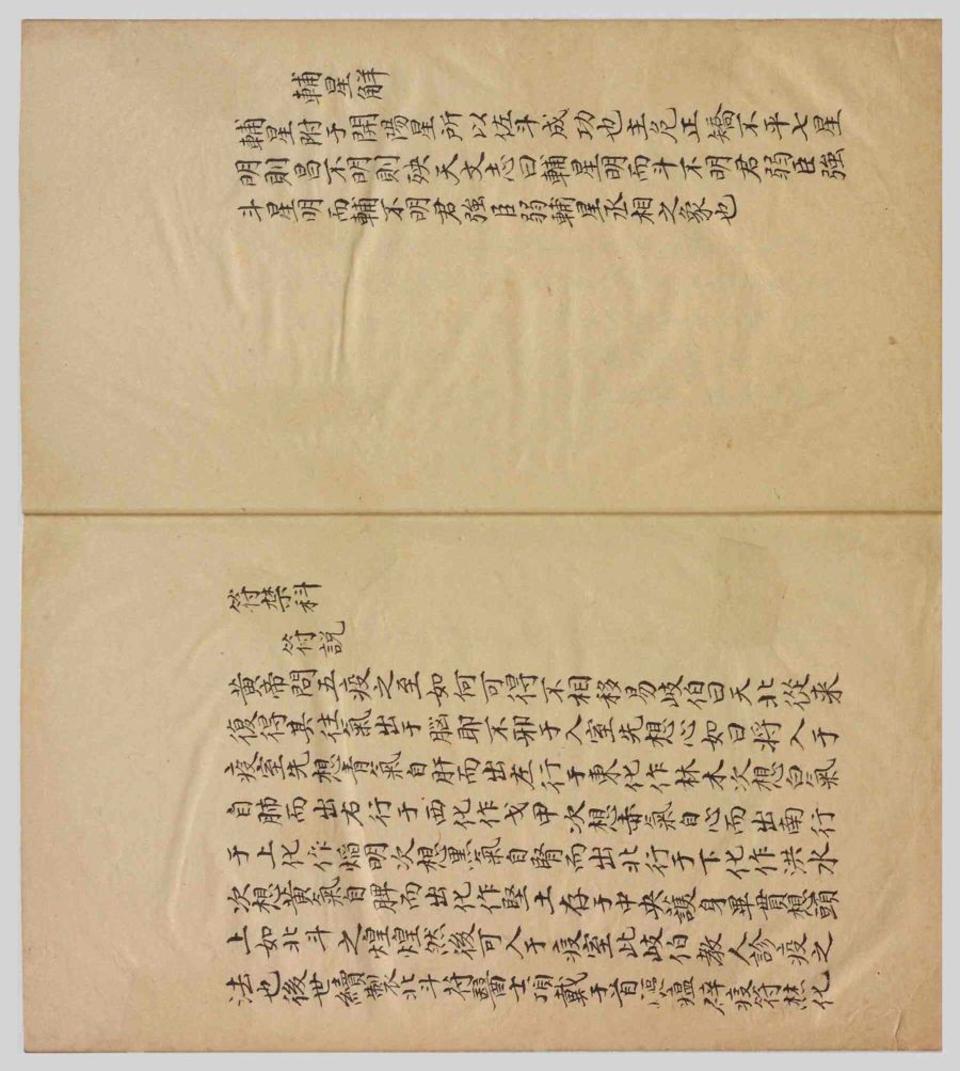 輔星解
輔星附于開陽星所以佐斗成功也主危正矯不平七星
明則昌不明則殃天文志曰輔星明而斗不明君弱臣強
斗星明而輔不明君強臣弱輔星丞相之象也
符禁科
符說
黃帝問五疫之至如何可得不相移易岐伯曰天北從来
復得其往氣出于腦耶不邪于入室先想心如日將入于
疫室先想青氣自肝而出左行于東化作林木次想白氣
自肺而出右行于西化作戈甲次想赤氣自心而出南行
于上化作焰明次想黒氣自腎而出北行于下化作洪水
次想黄氣自脾而出化作堅土存于中央護身畢貫想頭
上如北斗之煌煌然後可入于疫室此岐伯教人診疫之
法也後世續製北斗符醫士頂戴于首瘟辟疫符焦化